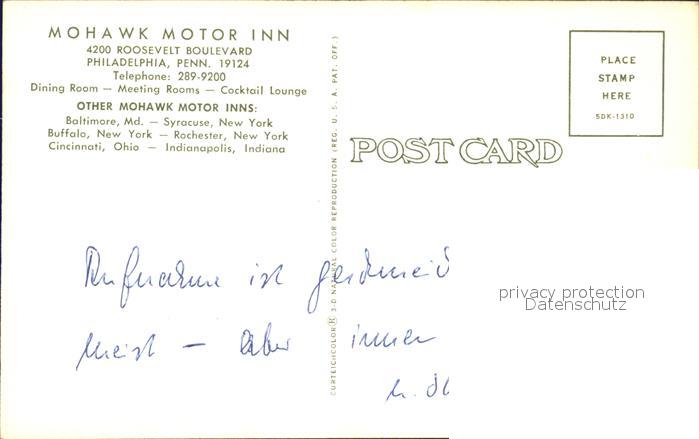 MOHAWK MOTOR INN
4200 ROOSEVELT BOULEVARD
PHILADELPHIA, PENN. 19124
Telephone: 289-9200
Dining Room — Meeting Rooms — Cocktail Lounge
OTHER MOHAWK MOTOR INNS:
Baltimore, Md. — Syracuse, New York
Buffalo, New York — Rochester, New York
Cincinnati, Ohio — Indianapolis, Indiana
CURTEICHCOLOR® 3-D NATURAL COLOR REPRODUCTION (REG. U. S. A. PAT. OFF.)
PLACE
STAMP
HERE
5DK-1310
POST CARD
Aufnahme ist
meist — aber immer
privacy protection
Datenschutz